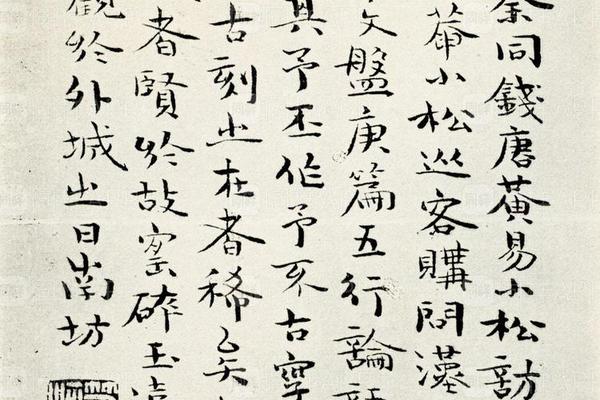 余同錢唐黃易小松訪
小松巡客購問漢
文盤庚篇五行論語
其予丕作予亥古
古刻之在者稀矣
者賢於故窯碎玉
觀於外城之日南坊